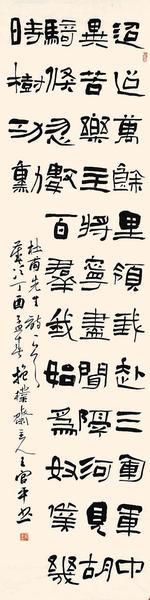 迢迢萬餘里領我赴三軍軍中
異苦樂主將寧盡聞隔河見胡
騎倏忽數百羣我始為奴僕幾
時樹功勳
杜甫先生詩
歲次丁酉孟春抱樸齋主人